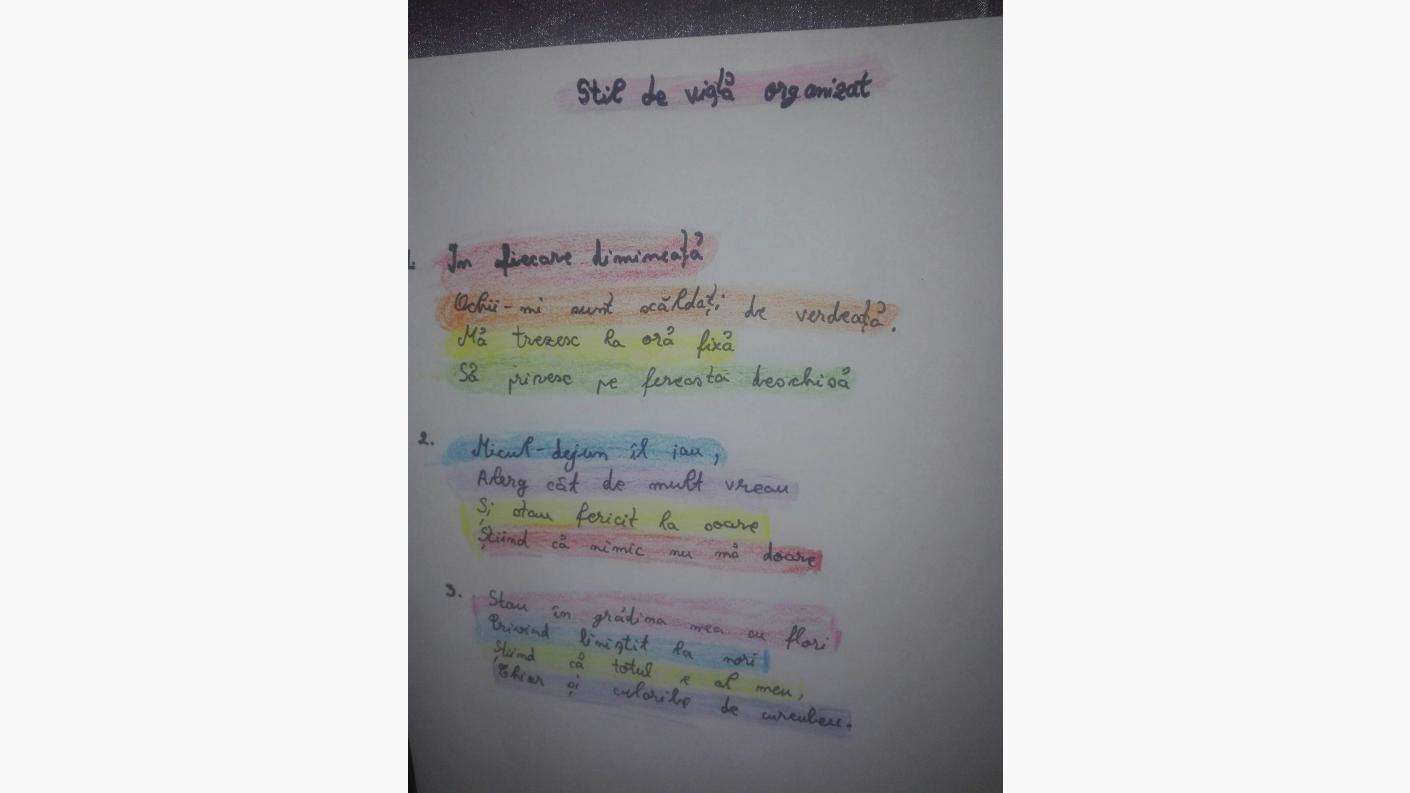 Stil de viață organizat
1. În fiecare dimineață
Ochii-mi sunt scăldați de verdeață.
Mă trezesc la oră fixă
Să privesc pe fereastă deschisă
2. Micul-dejun îl iau,
Alerg cât de mult vreau
Și stau fericit la soare
Știind că nimic nu mă doare
3. Stau în grădina mea cu flori
Privind liniștit la nori
Știind că totul e al meu,
Chiar și culorile de curcubeu.